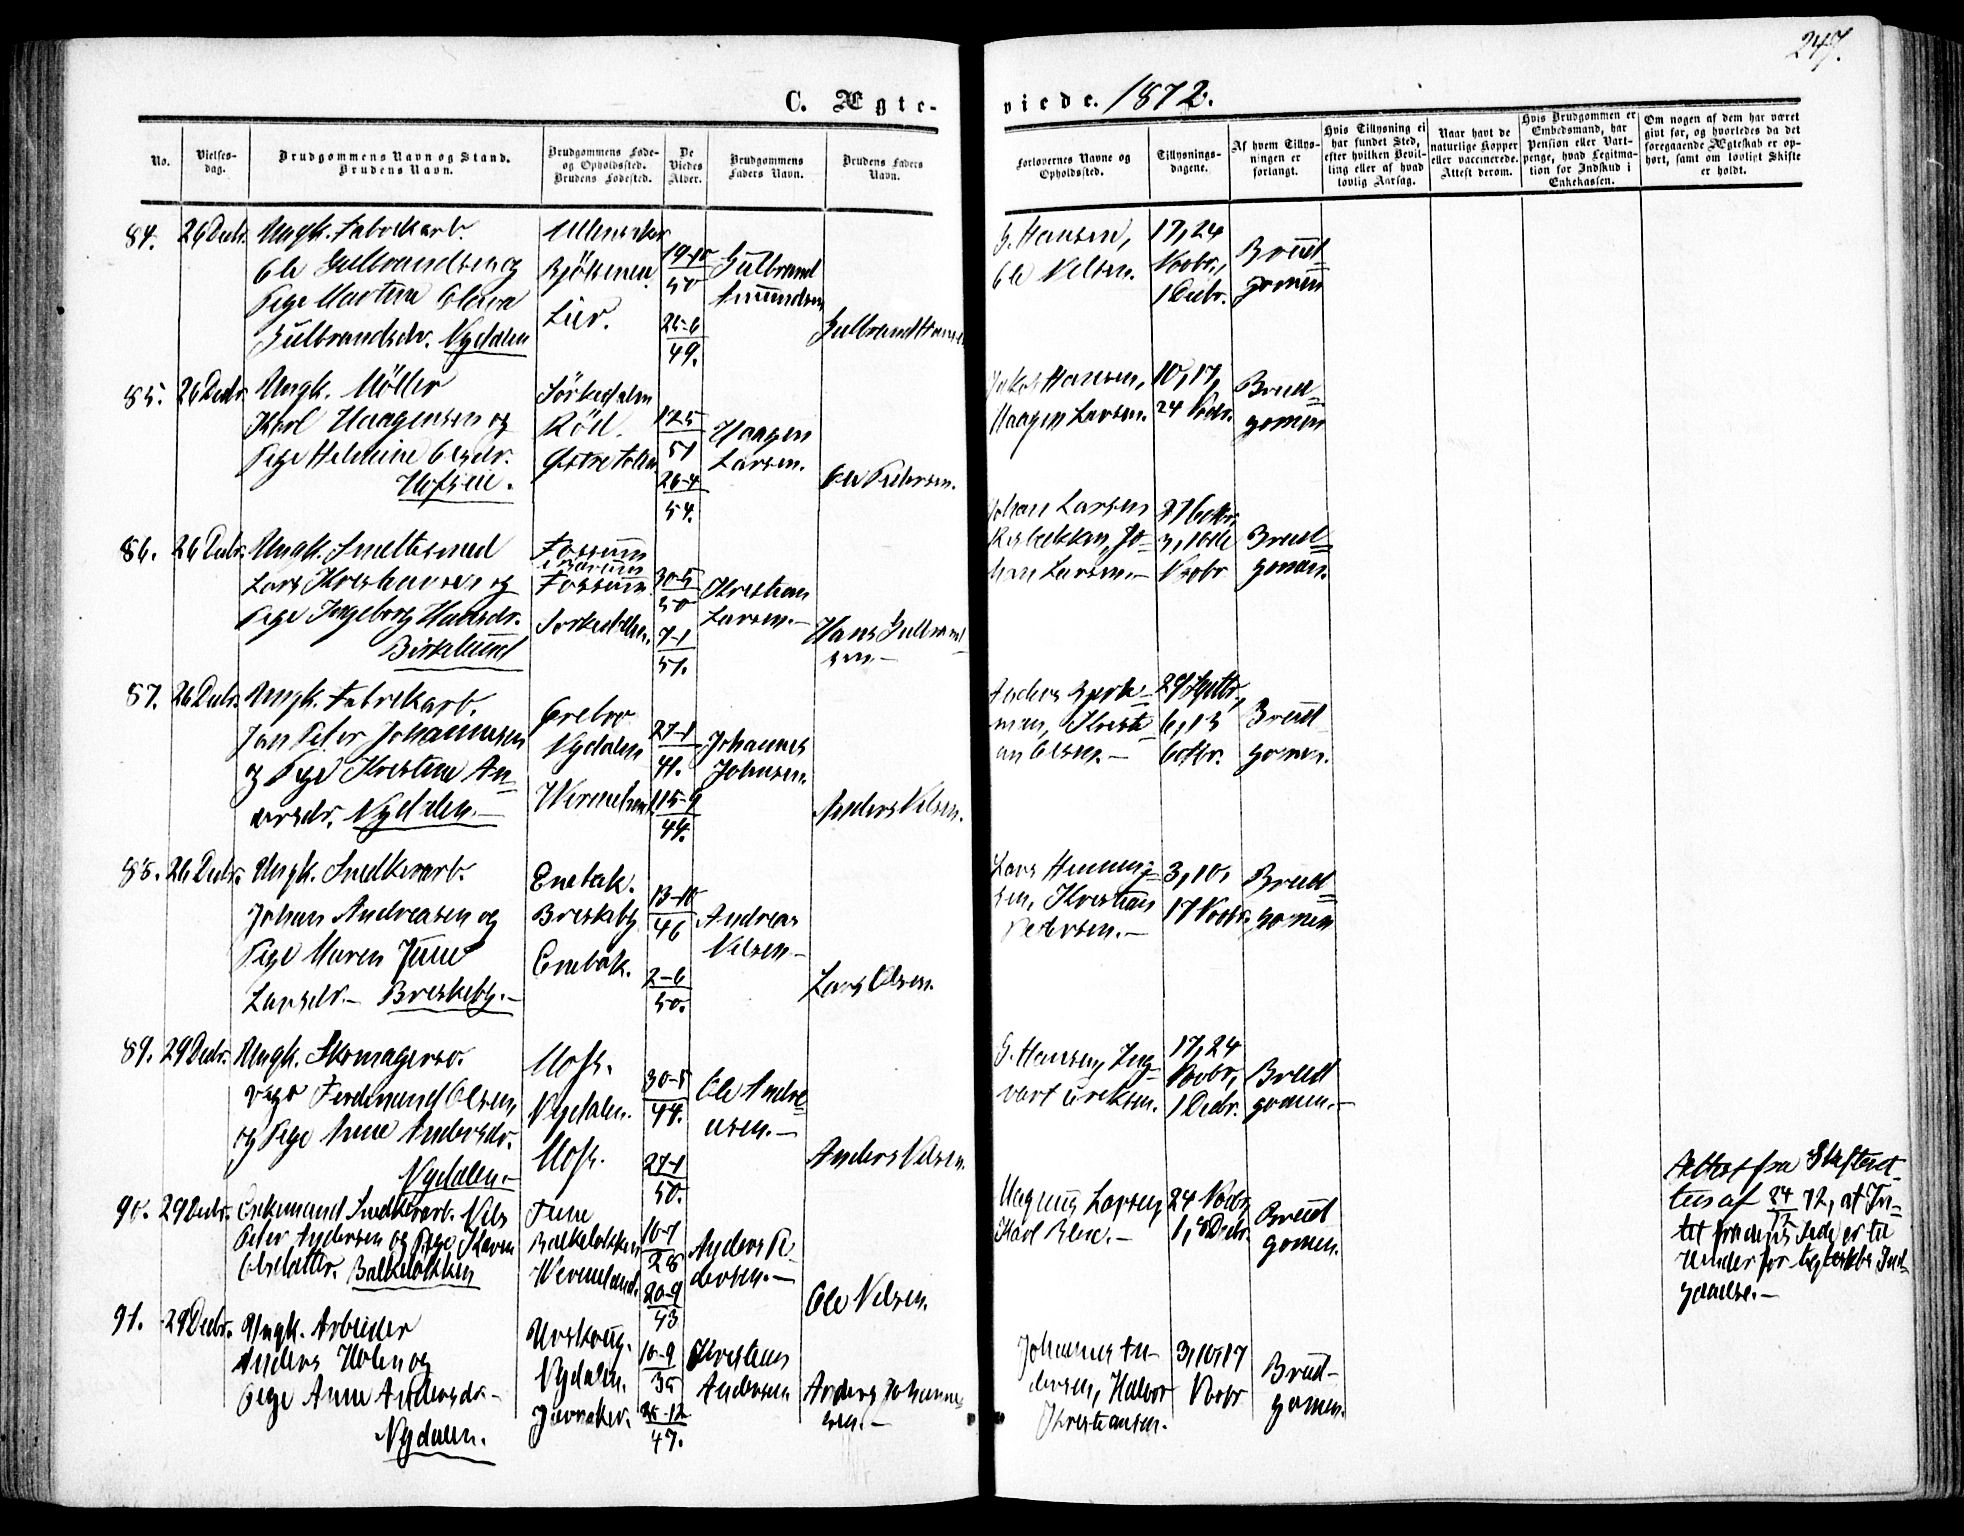 247.
C. Ægte-
viede. 1872.
No.
Vielses-
dag.
Brudgommens Navn og Stand.
Brudens Navn.
Brudgommens Føde-
og Opholdssted.
Brudens Fødested.
De
Viedes
Alder.
Brudgommens
Faders Navn.
Brudens Faders
Navn.
Forlovernes Navne og
Opholdssted.
Tillysnings-
dagene.
Af hvem Tillys-
ningen er
forlangt.
Hvis Tillysning ei
har fundet Sted,
efter hvilken Bevil-
ling eller af hvad
lovlig Aarsag.
Naar havt de
naturlige Kopper
eller vaccinerede.
Attest derom.
Hvis Brudgommen er
Embedsmand, har
Pension eller Vart-
penge, hvad Legitima-
tion for Indskud i
Enkekassen.
Om nogen af dem har været
gift før, og hvorledes da det
foregaaende Ægteskab er op-
hørt, samt om lovligt Skifte
er holdt.
84. 26 Decbr. Ungk. Fabrikarb.
Ole Gulbrandsen og
Pige Martine Olava
Gulbrandsdr. Nydalen
Ullensaker
Bjölsenen.
Lier.
19-10
50
25-6
49.
Gulbrand
Amundsen
Gulbrand Hansen
G. Hansen,
Ole Nilsen.
17, 24
Novbr.,
1 Decbr.
Brud-
gomen
85. 26 Decbr. Ungk. Möller
Karl Haagensen og
Pige Helmine Olsdr.
Hofsin.
Sörkedalen
Röd.
Østre Toten
12-5
51
26-4
54.
Haagen
Larsen.
Ole Pedersen.
Jakob Hansen,
Haagen Larsen.
10, 17,
24 Novbr.
Brud-
gomen
86. 26 Decbr. Ungk. Smeltesmed
Lars Kristiansen og
Pige Ingeborg Hansdr.
Birkelund
Fossum
i Bærum
Fossum
Sorkedalen.
30-5
50
7-1
51.
Kristian
Larsen.-
Hans Gulbrand-
sen.-
Johan Larsen
Risbekken, Jo-
han Larsen.-
27 Octbr.,
3, 10de
Novbr
Brud-
goman.
87. 26 Decbr. Ungk. Fabrikarb.
Jan Peter Johannesen
og Pige Kristine An-
dersdr. Nydalen.-
Örebro
Nydalen
Wermeland
27-1
41.
15-9
44.
Johannes
Johnsen.
Anders Nilsen.
Anders
man, Kristi-
an Olsen.-
29 Septbr,
6, 13
Octbr.
Brud-
gomen.
88. 26 Decbr. Ungk. Snedkerarb.
Johan Andreasen og
Pige Maren June
Larsdr.- Briskeby.-
Enebak.
Briskeby
Enebak.
13-10
46
2-6
50.
Andreas
Nilsen-
Lars Olsen.
Lars Henning-
sen, Kristian
Pedersen.-
3, 10,
17 Novbr.
Brud-
gomen
89. 29 Decbr. Ungk. Skomagersv.
Vigo Ferdinand Olsen,
og Pige Anne Andersdr.
Nydalen.-
Moss.
Nydalen.
Moss.
30-5
44.
27-1
50.
Ole Andre-
asen.-
Anders Nilsen.
G. Hansen, Ing-
vart Ereksen.
17, 24
Novbr,
1 Decbr.
Brud
gomen.-
90. 29 Decbr. Enkemand Snedkerarb. Nils
Peter Andersen og Pige Karen
Olsdatter. Bakkeløkken
Fune
Bakkeløkken
Wermeland.
10-7
28
20-9
43
Anders Pe-
dersen.-
Ole Nilsen.
Magnus Larsen,
Karl Blix.-
24 Novbr,
1, 8 Decbr.
Brud
gomen.
Attest fra Skifteret-
ten af 24/12 72, at In-
tet fra dens Side er til
Hinder for Egteskbs Ind-
gaaelse.-
91. 29 Decbr. Ungk. Arbeider
Anders Holen og
Pige Anne Andersdr.-
Nydalen.
Urskoug.
Nydalen.
Jevnaker.
10-9
35
25-12
47.
Kristian
Andersen
Anders Johanne-
sen.-
Johannes An-
dersen, Halvor
Kristiansen.
3, 10, 17
Novbr
Brud-
gomen.